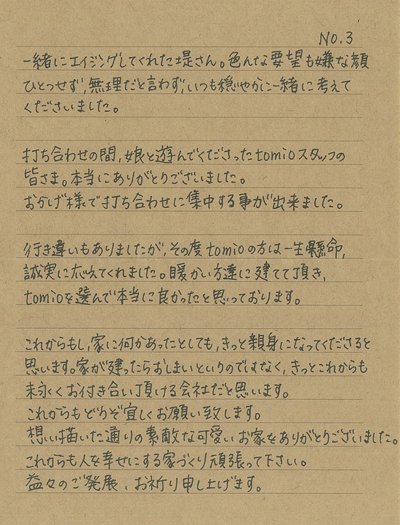 NO.3
一緒にエイジングしてくれた堤さん。色んな要望も嫌な顔
ひとつせず,無理だと言わず,いつも穏やかに一緒に考えて
くださいました。
打ち合わせの間,娘と遊んでくださったtomioスタッフの
皆さま。本当にありがとうございました。
おかげ様で打ち合わせに集中する事が出来ました。
行き違いもありましたが,その度tomioの方は一生懸命,
誠実に応えてくれました。暖かい方達に建てて頂き,
tomioを選んで本当に良かったと思っております。
これからもし,家に何かあったとしても,きっと親身になってくださると
思います。家が建ったらおしまいというのではなく,きっとこれからも
末永くお付き合い頂ける会社だと思います。
これからもどうぞ宜しくお願い致します。
想い描いた通りの素敵な可愛いお家をありがとうございました。
これからも人を幸せにする家づくり頑張って下さい。
益々のご発展,お祈り申し上げます。